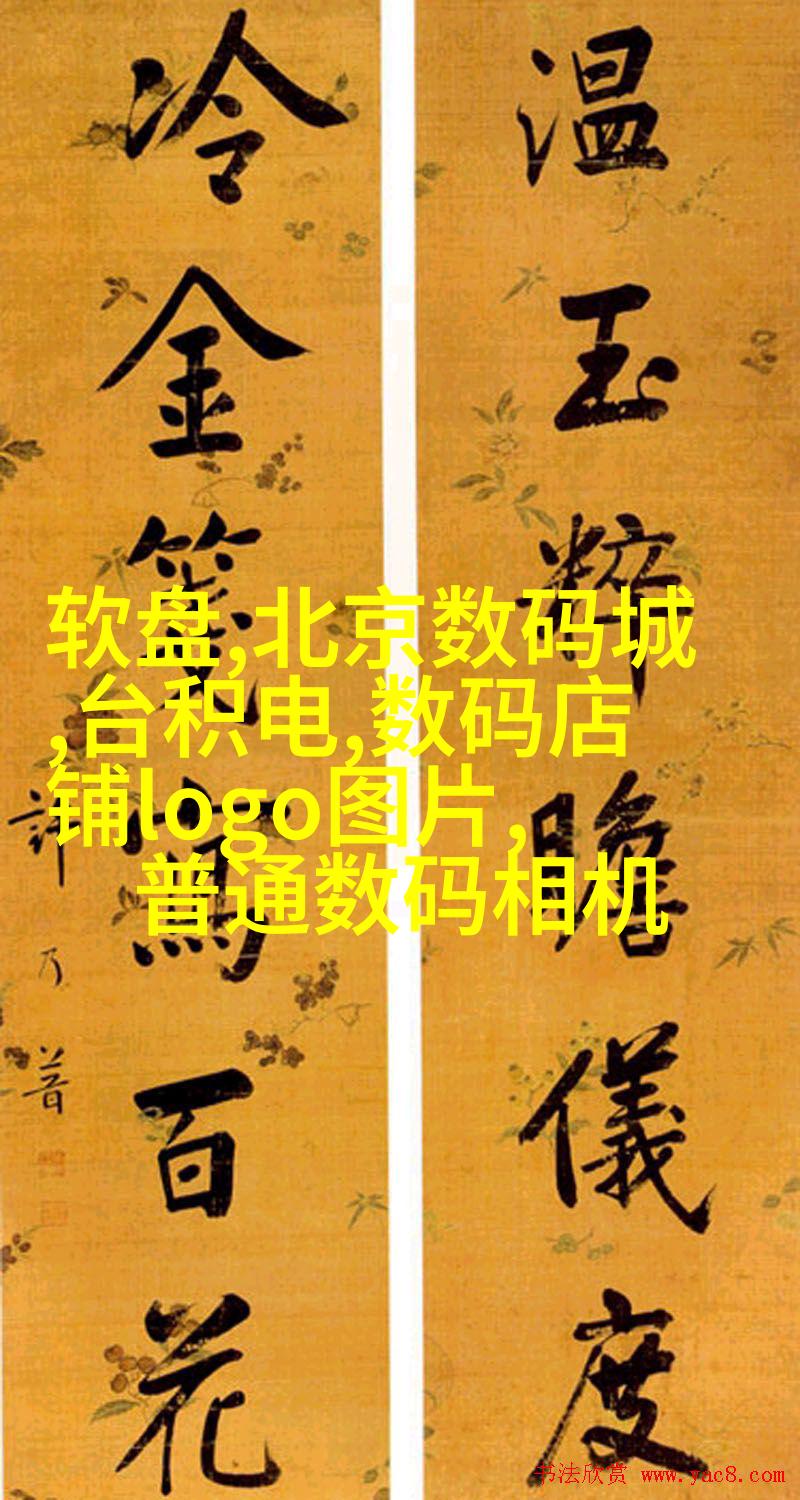 温玉粹瞻儀度
冷金箋寫百花
許乃普
软盘,北京数码城
,台积电,数码店
铺logo图片,
普通数码相机
书法欣赏 www.yac8.com